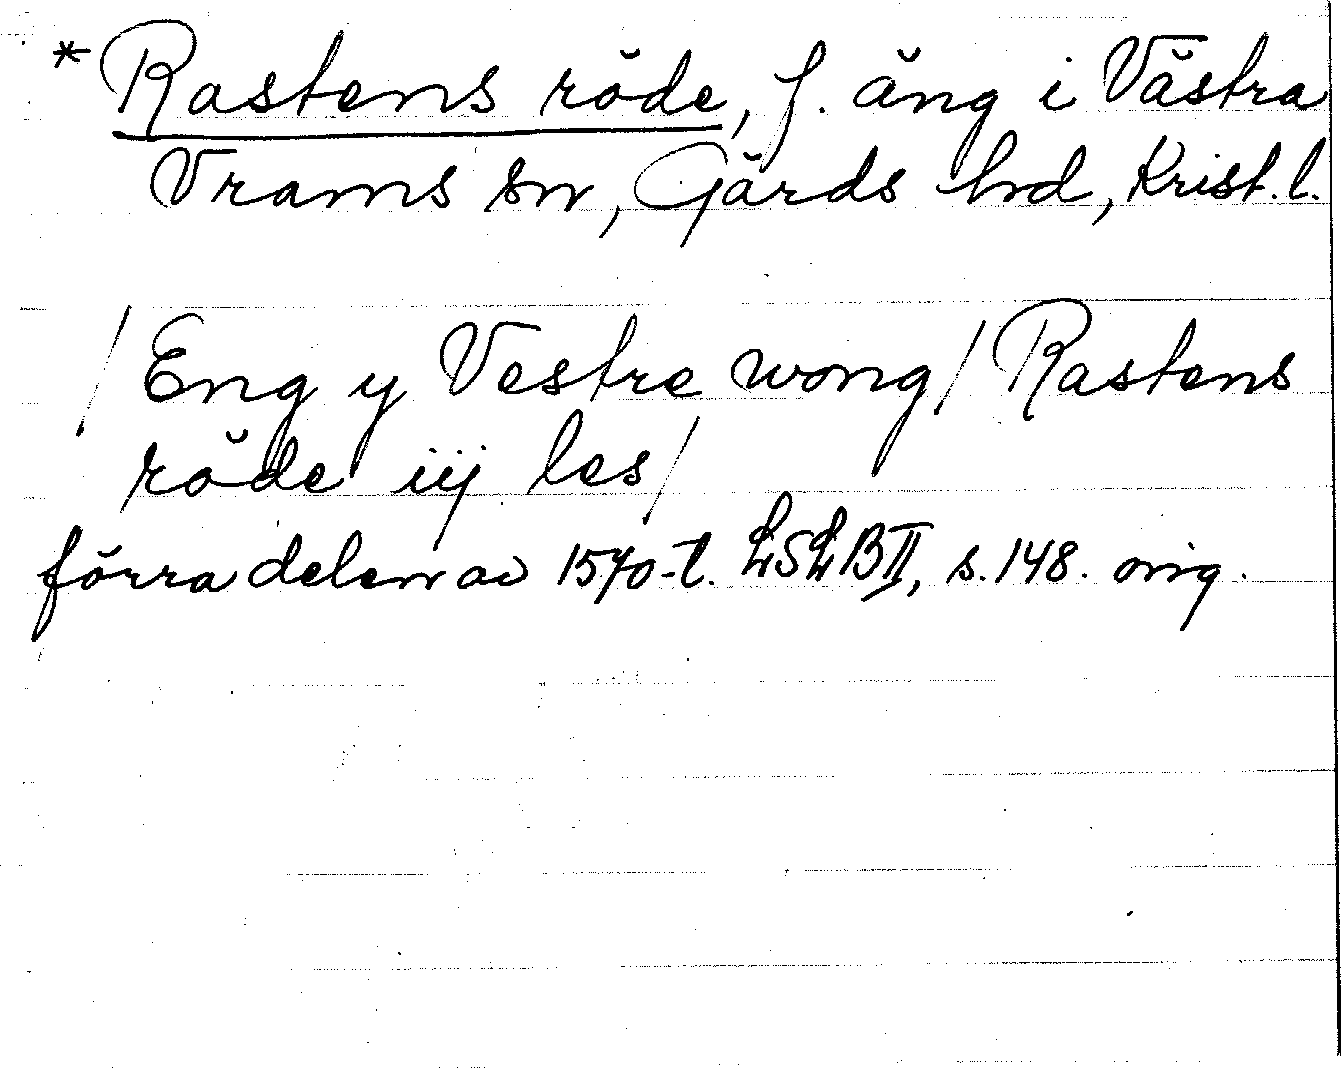 * Rastens röde, f. äng i Västra
Vrams sn, Gärds hd, Krist. l.
/Eng y Vestre wong/ Rastens
röde iij les/
förra delen av 1570-t. LSLB II, s. 148. orig.